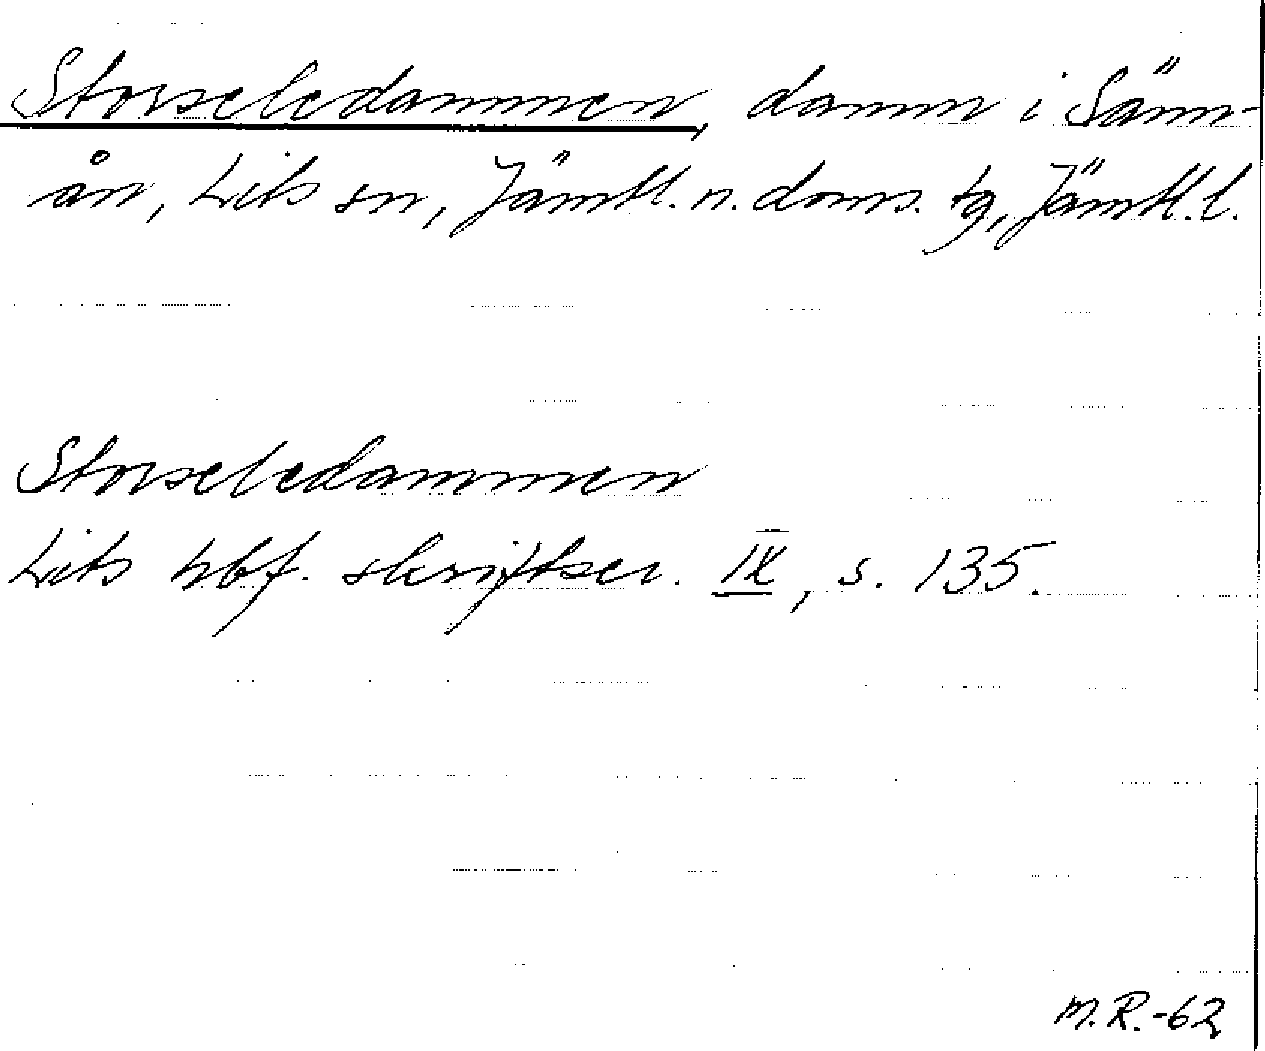 Storseledammen, damm i Sänn-
ån, Lits sn, Jämtl. n. doms. tg, Jämtl. l.
Storseledammen
Lits hbf. skriftser. IX, s. 135.
M.R.-62